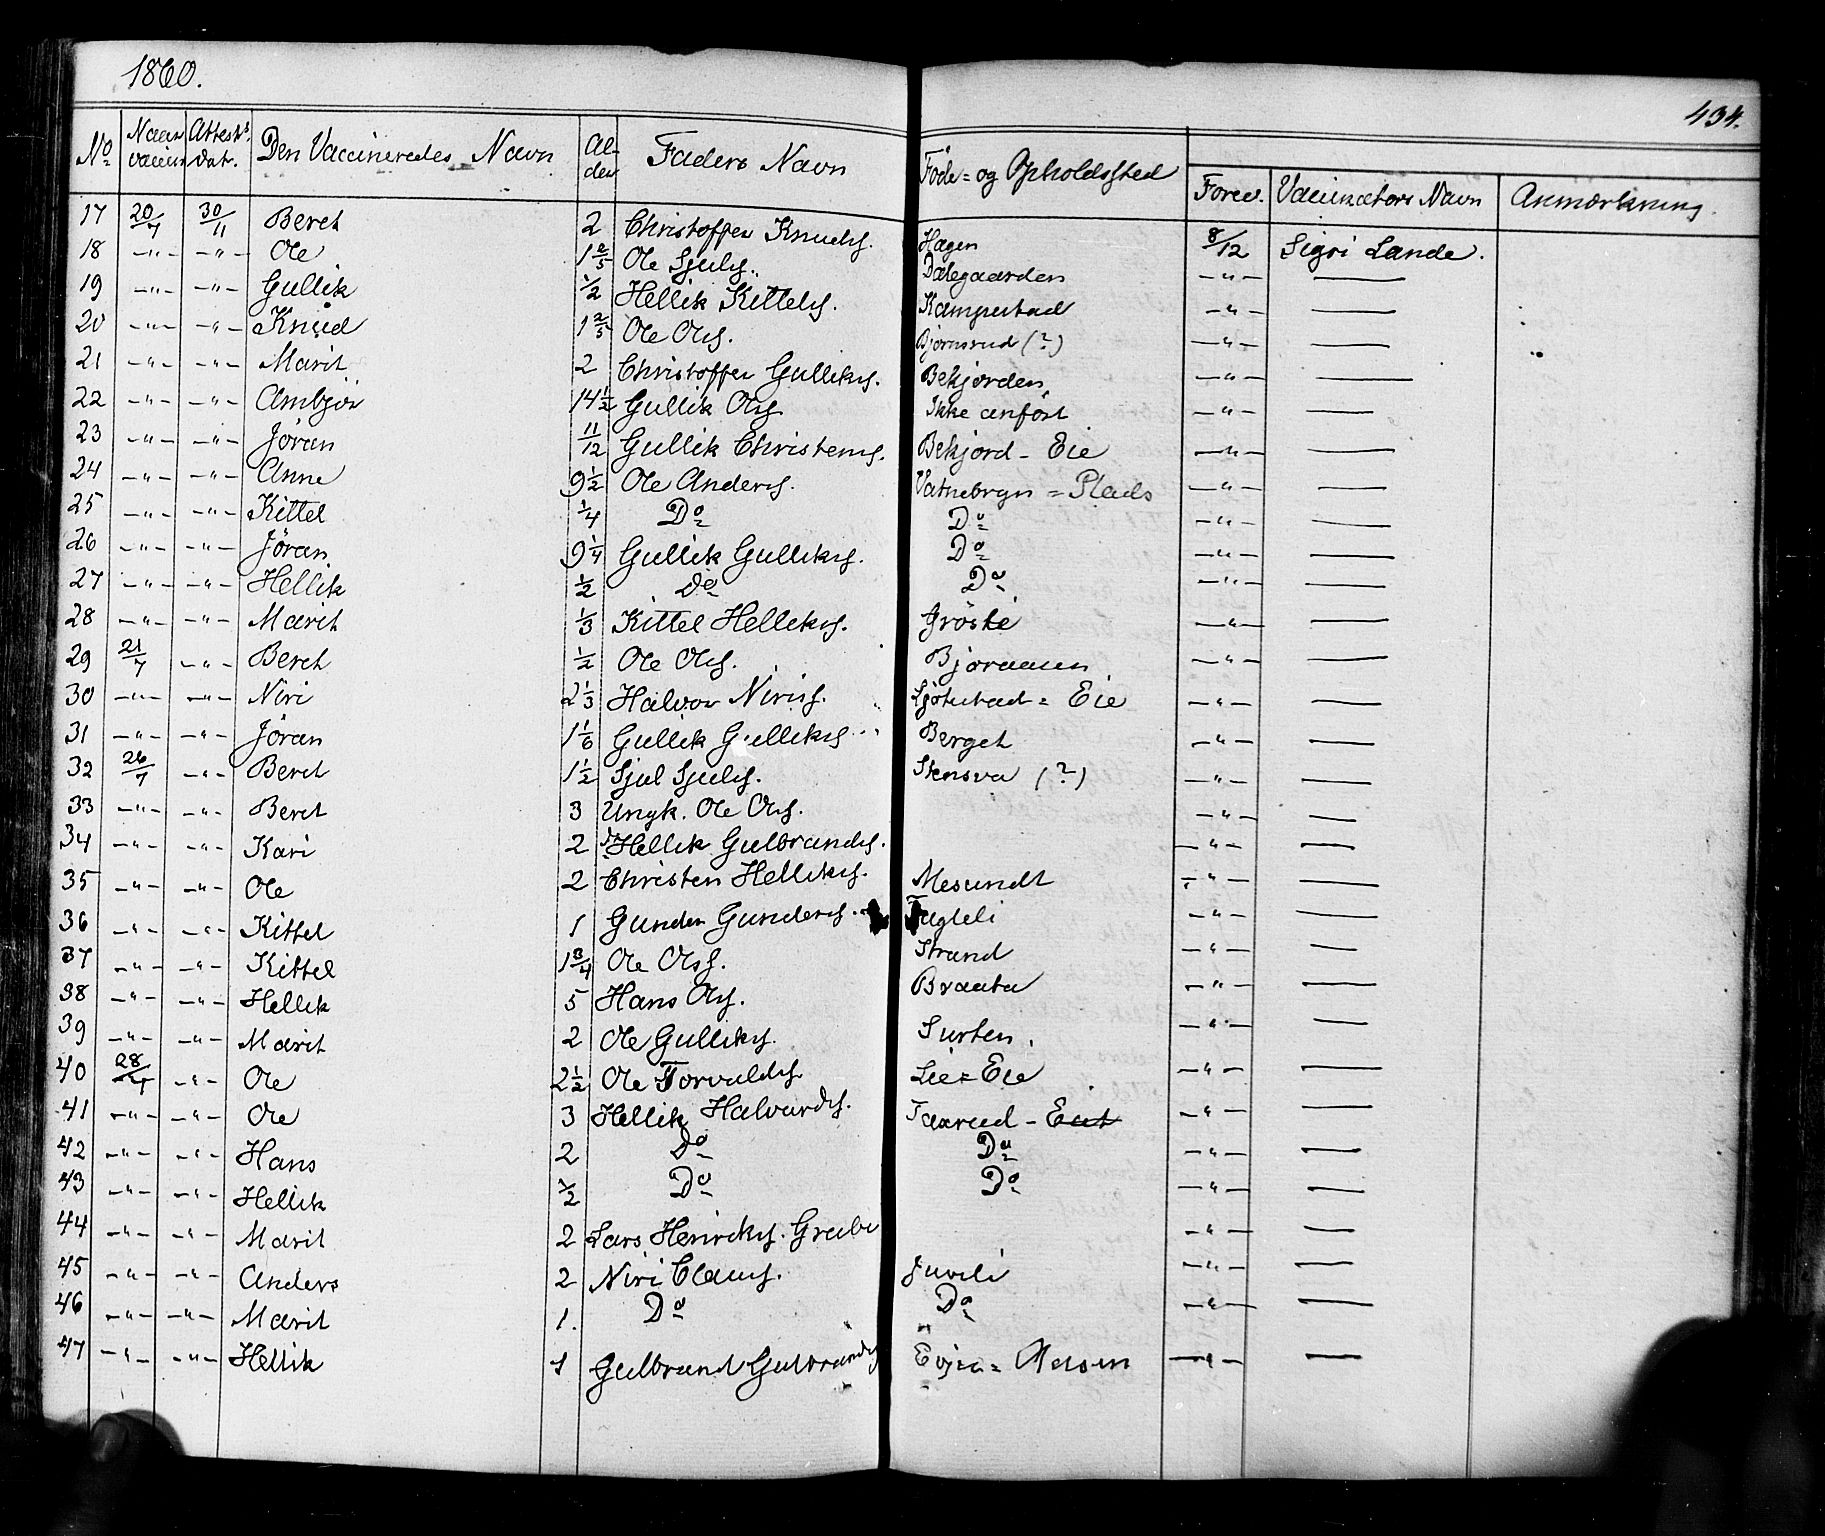 1860.
434.
No Naar vaccin Attests dat. Den Vaccineredes Navn Alder Faders Navn Føde= og Opholdssted Forev. Vaccinators Navn Anmærkning.
17 20/7 30/11 Beret 2 Christoffer Knuds. Hagen 8/12 Sigri Lande.
18 -"- -"- Ole 1 2/5 Ole Sjuls. Dalegaarden -"- —
19 -"- -"- Gullik 1/2 Hellik Kittels. Kampestad -"- —
20 -"- -"- Knud 1 2/5 Ole Ols. Bjørnsrud (?) -"- —
21 -"- -"- Marit 2 Christoffer Gulliks. Bekjorden -"- —
22 -"- -"- Ambjør 14 1/2 Gullik Ols. Ikke anført -"- —
23 -"- -"- Jøran 11/12 Gullik Christens. Bekjord - Eie -"- —
24 -"- -"- Anne 9 1/2 Ole Anders. Vatnebryn = Plads -"- —
25 -"- -"- Kittel 1/4 Do Do -"- —
26 -"- -"- Jøran 9 1/4 Gullik Gulliks. Do -"- —
27 -"- -"- Hellik 1/2 Do Do -"- —
28 -"- -"- Marit 1/3 Kittel Helliks. Grøslie -"- —
29 21/7 -"- Beret 1/2 Ole Ols. Bjøraasen -"- —
30 -"- -"- Niri 2 1/3 Halvor Niris. = Eie -"- —
31 -"- -"- Jøran 1 1/6 Gullik Gulliks. Berget -"- —
32 26/7 -"- Beret 1 1/2 Sjul Sjuls. Stensva (?) -"- —
33 -"- -"- Beret 3 Ungk. Ole Ols. -"- —
34 -"- -"- Kari 2 Hellik Gulbrands. -"- —
35 -"- -"- Ole 2 Christen Helliks. Mesundt -"- —
36 -"- -"- Kittel 1 Gunder Gunders. Fugleli -"- —
37 -"- -"- Kittel 1 3/4 Ole Ols. Strand -"- —
38 -"- -"- Hellik 5 Hans Ols. Braata -"- —
39 -"- -"- Marit 2 Ole Gulliks. Surten. -"- —
40 28/7 -"- Ole 2 1/2 Ole Torvalds. Lie= Eie -"- —
41 -"- -"- Ole 3 Hellik Halvards. Taxrud - -"- —
42 -"- -"- Hans 2 Do Do -"- —
43 -"- -"- Hellik 1/2 Do Do -"- —
44 -"- -"- Marit 2 Lars Henriks. -"- —
45 -"- -"- Anders 2 Niri Claus. Juveli -"- —
46 -"- -"- Marit 1. Do Do -"- —
47 -"- -"- Hellik 1 Gulbrand Gulbrands. -"- —